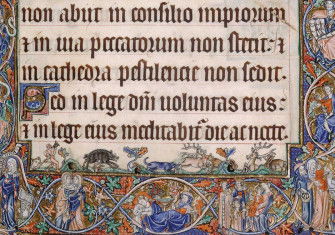 non abiit in consilio impiorum
⁊ in uia peccatorum non stetit: ⁊
in cathedra pestilencie non sedit.
Sed in lege dn̄i uoluntas eius:
⁊ in lege eius meditabit᷑ die ac nocte.